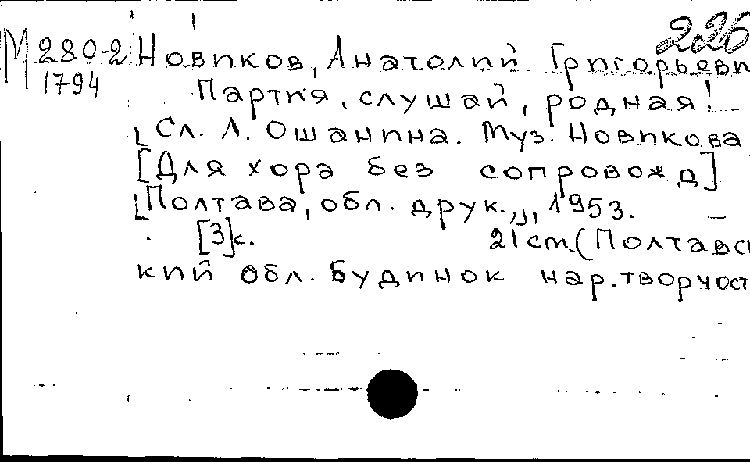 226
М 280-2 Новиков, Анатолий Григорьеви
1794 Партия, слушай, родная!
Сл. Л. Ошанина. Муз. Новикова
[Для хора без сопровожд]
Полтава, обл. друк., 1953.
[3]с. 21 cm. (Полтавсь
кий обл. будинок нар. творчост